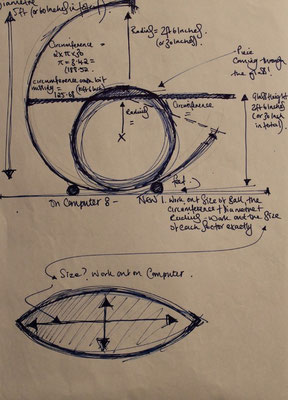 Diameter
5ft (or 60 Inches in total).
Radius = 2ft 6 Inches
(or 30 Inches).
Circumference =
2 x π x 30
π = 3.142 =
(188.52
Circumference
=
125.68
Piece
Coming through
the
Circumference
=
Radius
=
Height
2ft 6 Inch
(or 30 Inch
in total).
On Computer 8 -
New 1. Work out Size of Ball, the
Circumference + Diameter
Radius. Work out the Size
of each Sector exactly
Size? Work out on Computer.